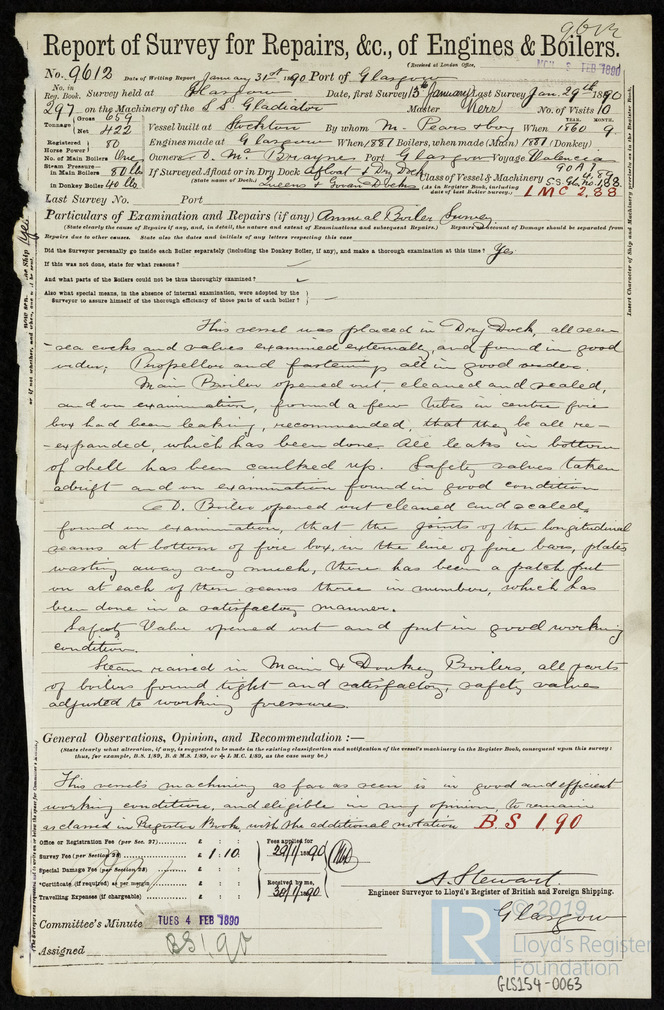 9612
Report of Survey for Repairs, &c., of Engines & Boilers.
(Received at London Office, MON 3 FEB 1890
No. 9612 Date of Writing Report January 31st 1890 Port of Glasgow
No. in Reg. Book. Survey held at Glasgow Date, first Survey 13th January Last Survey Jan. 29th 1890
297 on the Machinery of the S.S. Gladiator Master Kerr No. of Visits 10
Tonnage Gross 659 Net 422
Vessel built at Stockton By whom M. Pears & Coy When YEAR. 1860 MONTH. 9
Registered Horse Power 80
Engines made at Glasgow When 1881 Boilers, when made (Main) 1881 (Donkey)
No. of Main Boilers One
Owners D. McBrayne Port Glasgow Voyage Valencia
Steam Pressure in Main Boilers 80 lbs
in Donkey Boiler 40 lbs
If Surveyed Afloat or in Dry Dock Afloat & Dry Dock
(State name of Dock.) Queens & Govan Docks
Class of Vessel & Machinery 90A1
(As in Register Book, including date of last Boiler Survey.)
LMC 2.88
Last Survey No. Port
Particulars of Examination and Repairs (if any) Annual Boiler Survey.
(State clearly the cause of Repairs if any, and, in detail, the nature and extent of Examinations and subsequent Repairs.) Repairs on account of Damage should be separated from
Repairs due to other causes. State also the dates and initials of any letters respecting this case
Did the Surveyor personally go inside each Boiler separately (including the Donkey Boiler, if any), and make a thorough examination at this time? Yes
If this was not done, state for what reasons?
And what parts of the Boilers could not be thus thoroughly examined?
Also what special means, in the absence of internal examination, were adopted by the
Surveyor to assure himself of the thorough efficiency of those parts of each boiler?
This vessel was placed in Dry Dock, all seen
sea cocks and valves examined externally, and found in good
order; Propellor and fastenings all in good orders.
Main Boiler opened out, cleaned and scaled,
and on examination, found a few tubes in centre fire
box had been leaking, recommended, that they be all re-
-expanded, which has been done. All leaks in bottom
of shell has been caulked up. Safety valves taken
adrift and on examination found in good condition
D. Boiler opened out cleaned and scaled,
found on examination, that the joints of the longitudinal
seams at bottom of fire box, in the line of fire bars, plates
wasting away very much, there has been a patch put
on at each of these seams three in number, which has
been done in a satisfactory manner.
Safety Valve opened out and put in good working
condition.
Steam raised in Main & Donkey Boilers, all parts
of boilers found tight and satisfactory, safety valves
adjusted to working pressures.
General Observations, Opinion, and Recommendation :—
(State clearly what alteration, if any, is suggested to be made in the existing classification and notification of the vessel's machinery in the Register Book, consequent upon this survey:
thus, for example, B.S. 1/89, B. & M.S. 1/89, or L.M.C. 1/89, as the case may be.)
This vessels machinery as far as seen is in good and efficient
working condition, and eligible in my opinion, to remain
as classed in Register Book, with the additional notation B S 1.90
Office or Registration Fee (per Sec. 27) £ : :
Survey Fee (per Section 28) £ 1.10
Special Damage Fee (per Section 28) £ : :
*Certificate (if required) as per margin £ : :
Travelling Expenses (if chargeable) £ : :
Fees applied for
29/1/1890
Received by me,
30/1/1890
A. Stewart
Engineer Surveyor to Lloyd's Register of British and Foreign Shipping.
Glasgow
Committee's Minute TUES 4 FEB 1890
Assigned BS 1.90
Insert Character of Ship and Machinery precisely as in the Register Book.
LR
© 2019
Lloyd's Register
Foundation
GLS154-0063